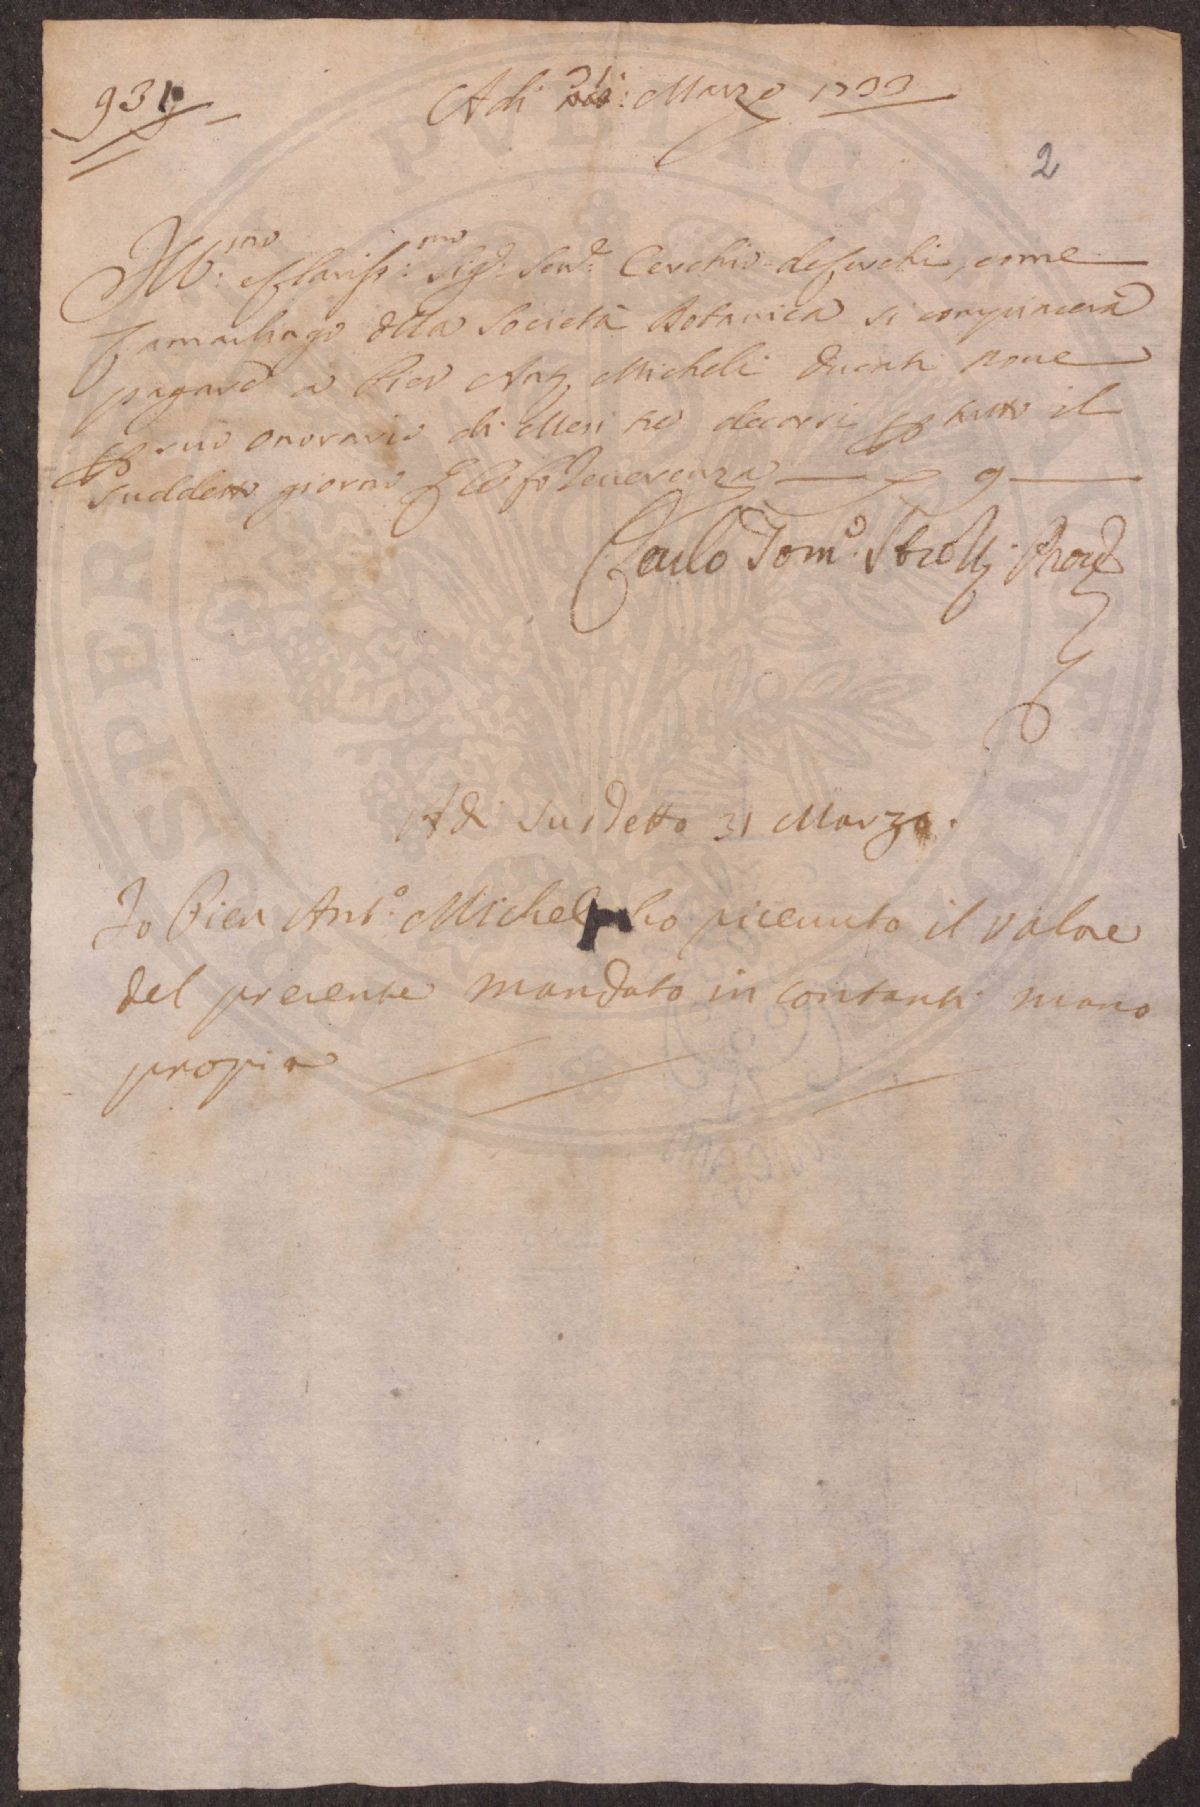 931
Adi 31: Marzo 1733
2
Ill:mo e Clariss:mo Sig: Sen: Cerchio de Cerchi, come
Camarlingo della Società Botanica si compiacerà
pagare a Pier Ant. Micheli Ducati nove
per suo onorario di Mesi tre decorsi per tutto il
suddetto giorno 9
Carlo Tom:o Strozzi Prov
Adi Suddetto 31 Marzo.
Io Pier Ant:o Micheli ho ricevuto il valore
del presente mandato in contanti mano
propia